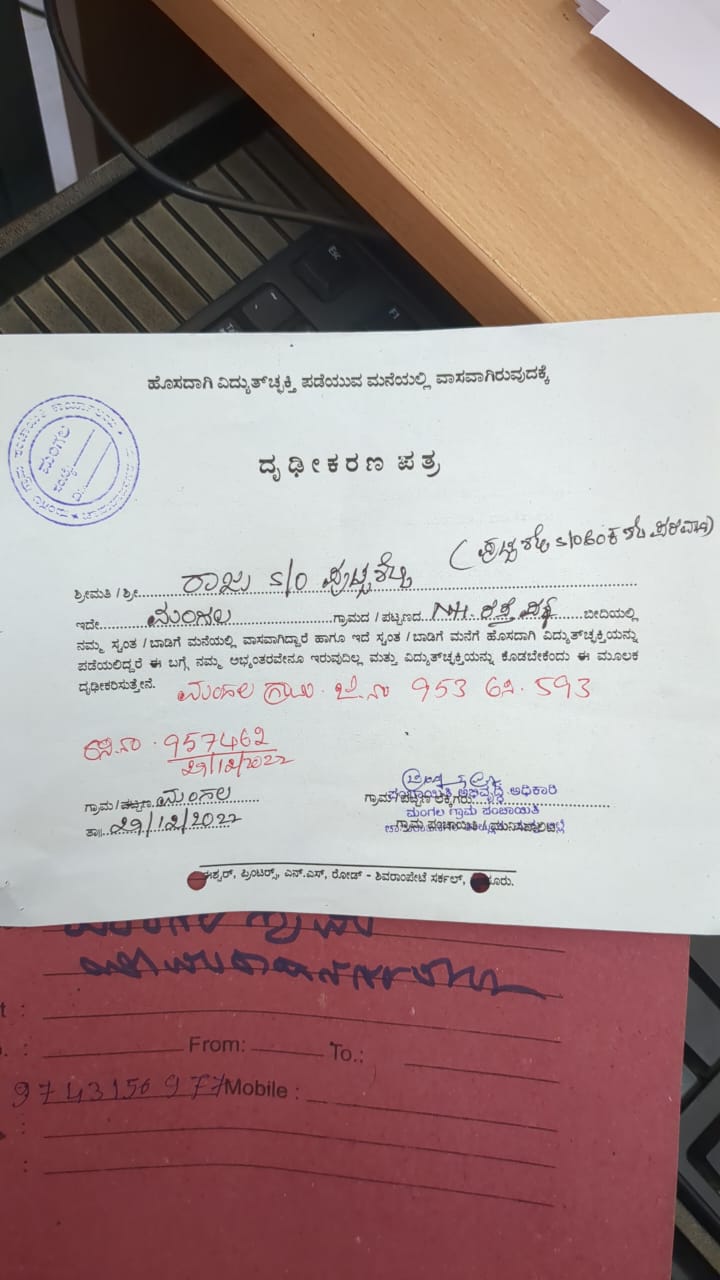 ಹೊಸದಾಗಿ ವಿದ್ಯುತ್‌ಚ್ಛಕ್ತಿ ಪಡೆಯುವ ಮನೆಯಲ್ಲಿ ವಾಸವಾಗಿರುವುದಕ್ಕೆ
ಮಂಗಲ
ದೃಢೀಕರಣ ಪತ್ರ
ಶ್ರೀಮತಿ / ಶ್ರೀ ರಾಜು S/O ಪುಟ್ಟಶೆಟ್ಟಿ
ಇದೇ ಮಂಗಲ ಗ್ರಾಮದ / ಪಟ್ಟಣದ NH. ರಸ್ತೆ ಬೀದಿಯಲ್ಲಿ
ನಮ್ಮ ಸ್ವಂತ / ಬಾಡಿಗೆ ಮನೆಯಲ್ಲಿ ವಾಸವಾಗಿದ್ದಾರೆ ಹಾಗೂ ಇದೆ ಸ್ವಂತ / ಬಾಡಿಗೆ ಮನೆಗೆ ಹೊಸದಾಗಿ ವಿದ್ಯುತ್‌ಚ್ಛಕ್ತಿಯನ್ನು
ಪಡೆಯಲಿದ್ದರೆ ಈ ಬಗ್ಗೆ ನಮ್ಮ ಅಭ್ಯಂತರವೇನೂ ಇರುವುದಿಲ್ಲ ಮತ್ತು ವಿದ್ಯುತ್‌ಚ್ಛಕ್ತಿಯನ್ನು ಕೊಡಬೇಕೆಂದು ಈ ಮೂಲಕ
ದೃಢೀಕರಿಸುತ್ತೇನೆ. ಮಂಗಲ ಗ್ರಾಮ 953 593
957462
29/12/2022
ಗ್ರಾಮ / ಪಟ್ಟಣ ಮಂಗಲ
ತಾ॥ 29/12/2022
ಪಂಚಾಯಿತಿ ಅಭಿವೃದ್ಧಿ ಅಧಿಕಾರಿ
ಮಂಗಲ ಗ್ರಾಮ ಪಂಚಾಯಿತಿ
ಗ್ರಾಮ ಪಂಚಾಯಿತಿ / ಮುನಿಸಿಪಾಲಿಟಿ
ಈಶ್ವರ್, ಪ್ರಿಂಟರ್ಸ್, ಎನ್.ಎಸ್, ರೋಡ್ - ಶಿವರಾಂಪೇಟೆ ಸರ್ಕಲ್,
From: To.:
9743156977 Mobile :